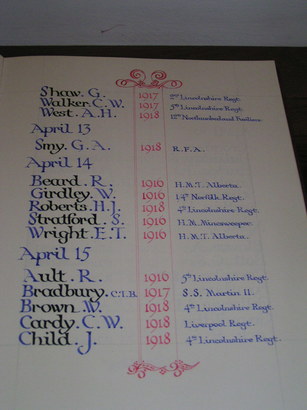 Shaw. G. 1917 2nd Lincolnshire Regt.
Walker. C.W. 1917 5th Lincolnshire Regt.
West. A.H. 1918 12th Northumberland Fusiliers
April 13
Smy. G.A. 1918 R.F.A.
April 14
Beard. R. 1916 H.M.T. Alberta.
Girdley. W. 1916 14th Norfolk Regt.
Roberts. H.J. 1918 4th Lincolnshire Regt.
Stratford. S. 1916 H.M. Minesweeper.
Wright. E.T. 1916 H.M.T. Alberta.
April 15
Ault. R. 1916 5th Lincolnshire Regt.
Bradbury. C.T.B. 1917 S.S. Martin II.
Brown. W. 1918 4th Lincolnshire Regt.
Cardy. C.W. 1918 Liverpool Regt.
Child. J. 1918 4th Lincolnshire Regt.